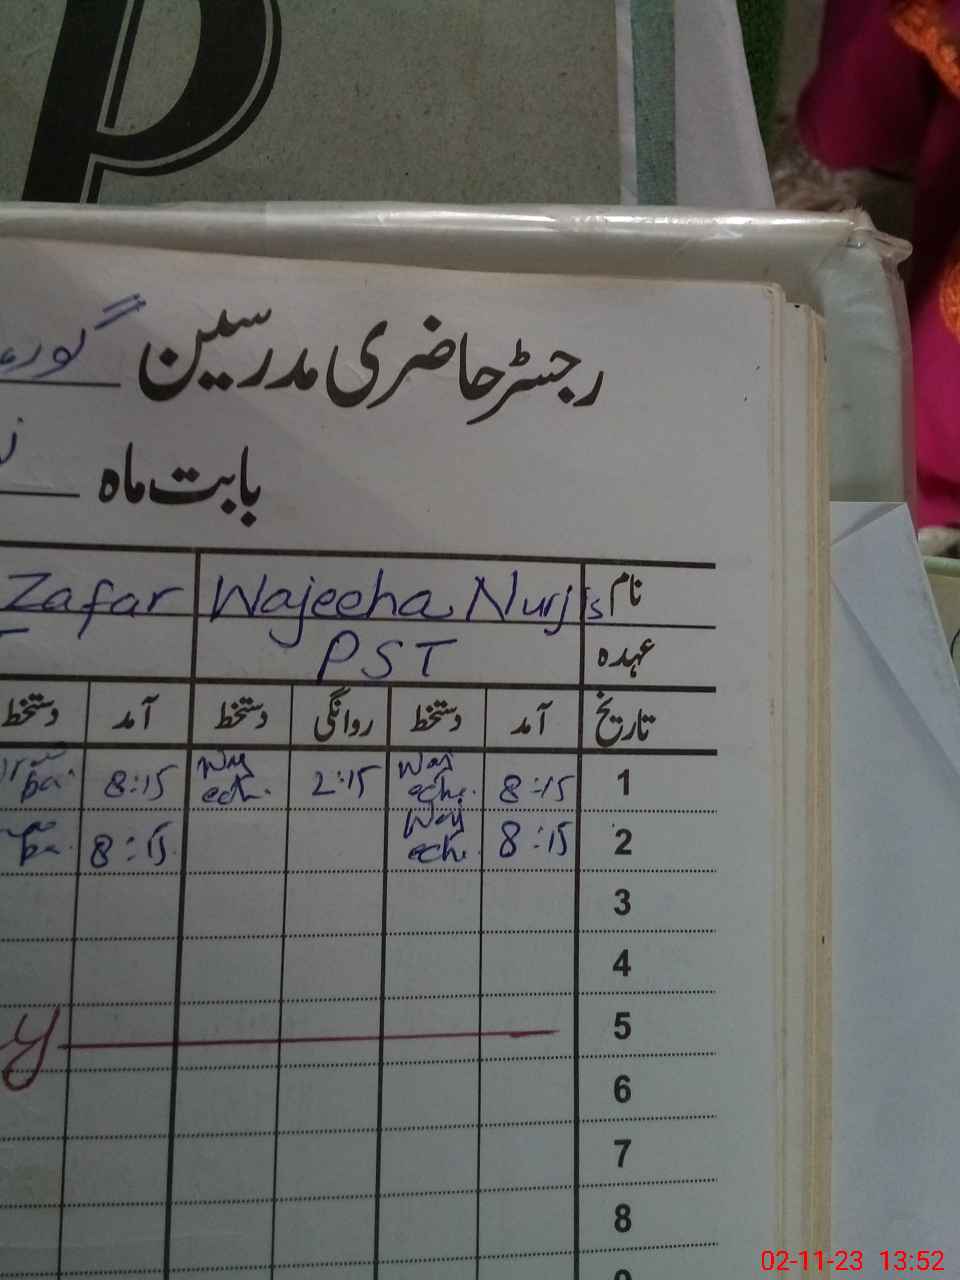 p
رجسٹر حاضری مدرسین گور
بابت ماہ
نام Wajeeha Nurjis Zafar
عہدہ PST
تاریخ آمد دستخط روانگی دستخط آمد دستخط
1 8:15 Waj eeh. 2:15 Waj eeh. 8:15
2 8:15 Waj eeh. 8:15
3
4
5 y
6
7
8
02-11-23 13:52